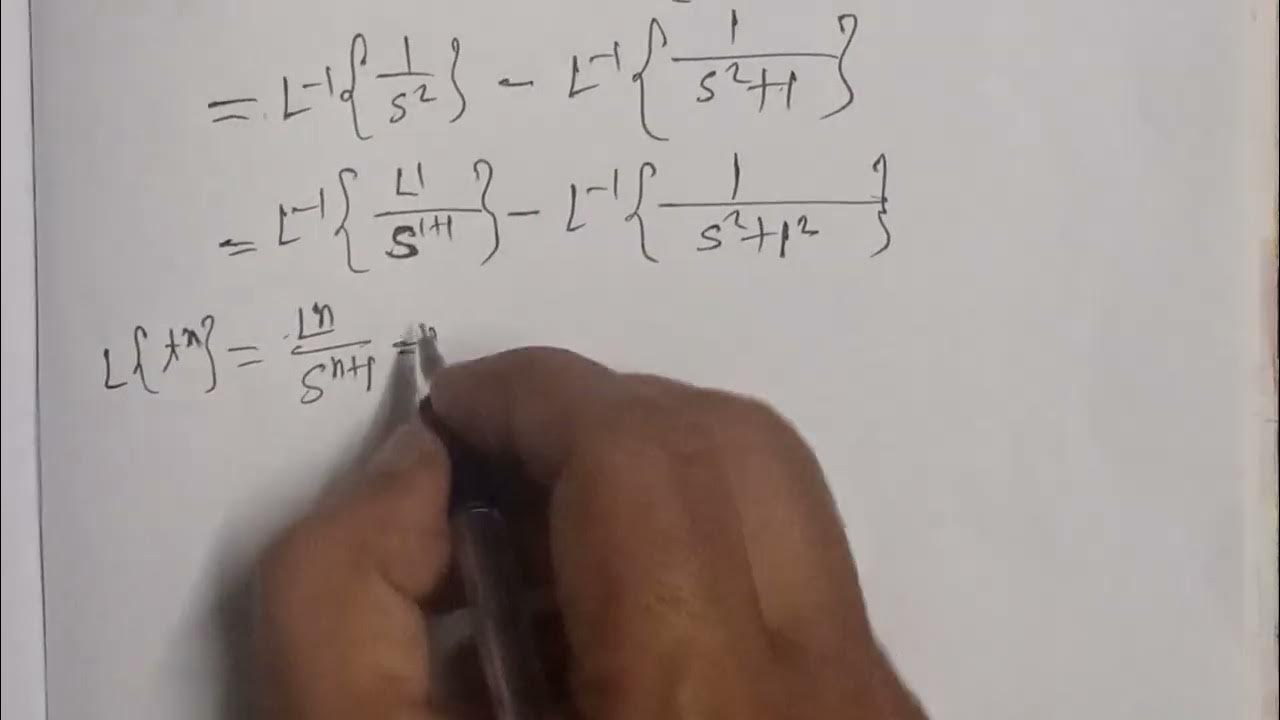 = L⁻¹{1/s²} - L⁻¹{1/(s²+1)}
= L⁻¹{∟1/s¹⁺¹} - L⁻¹{1/(s²+1²)}
L{tⁿ} = ∟n/sⁿ⁺¹ =